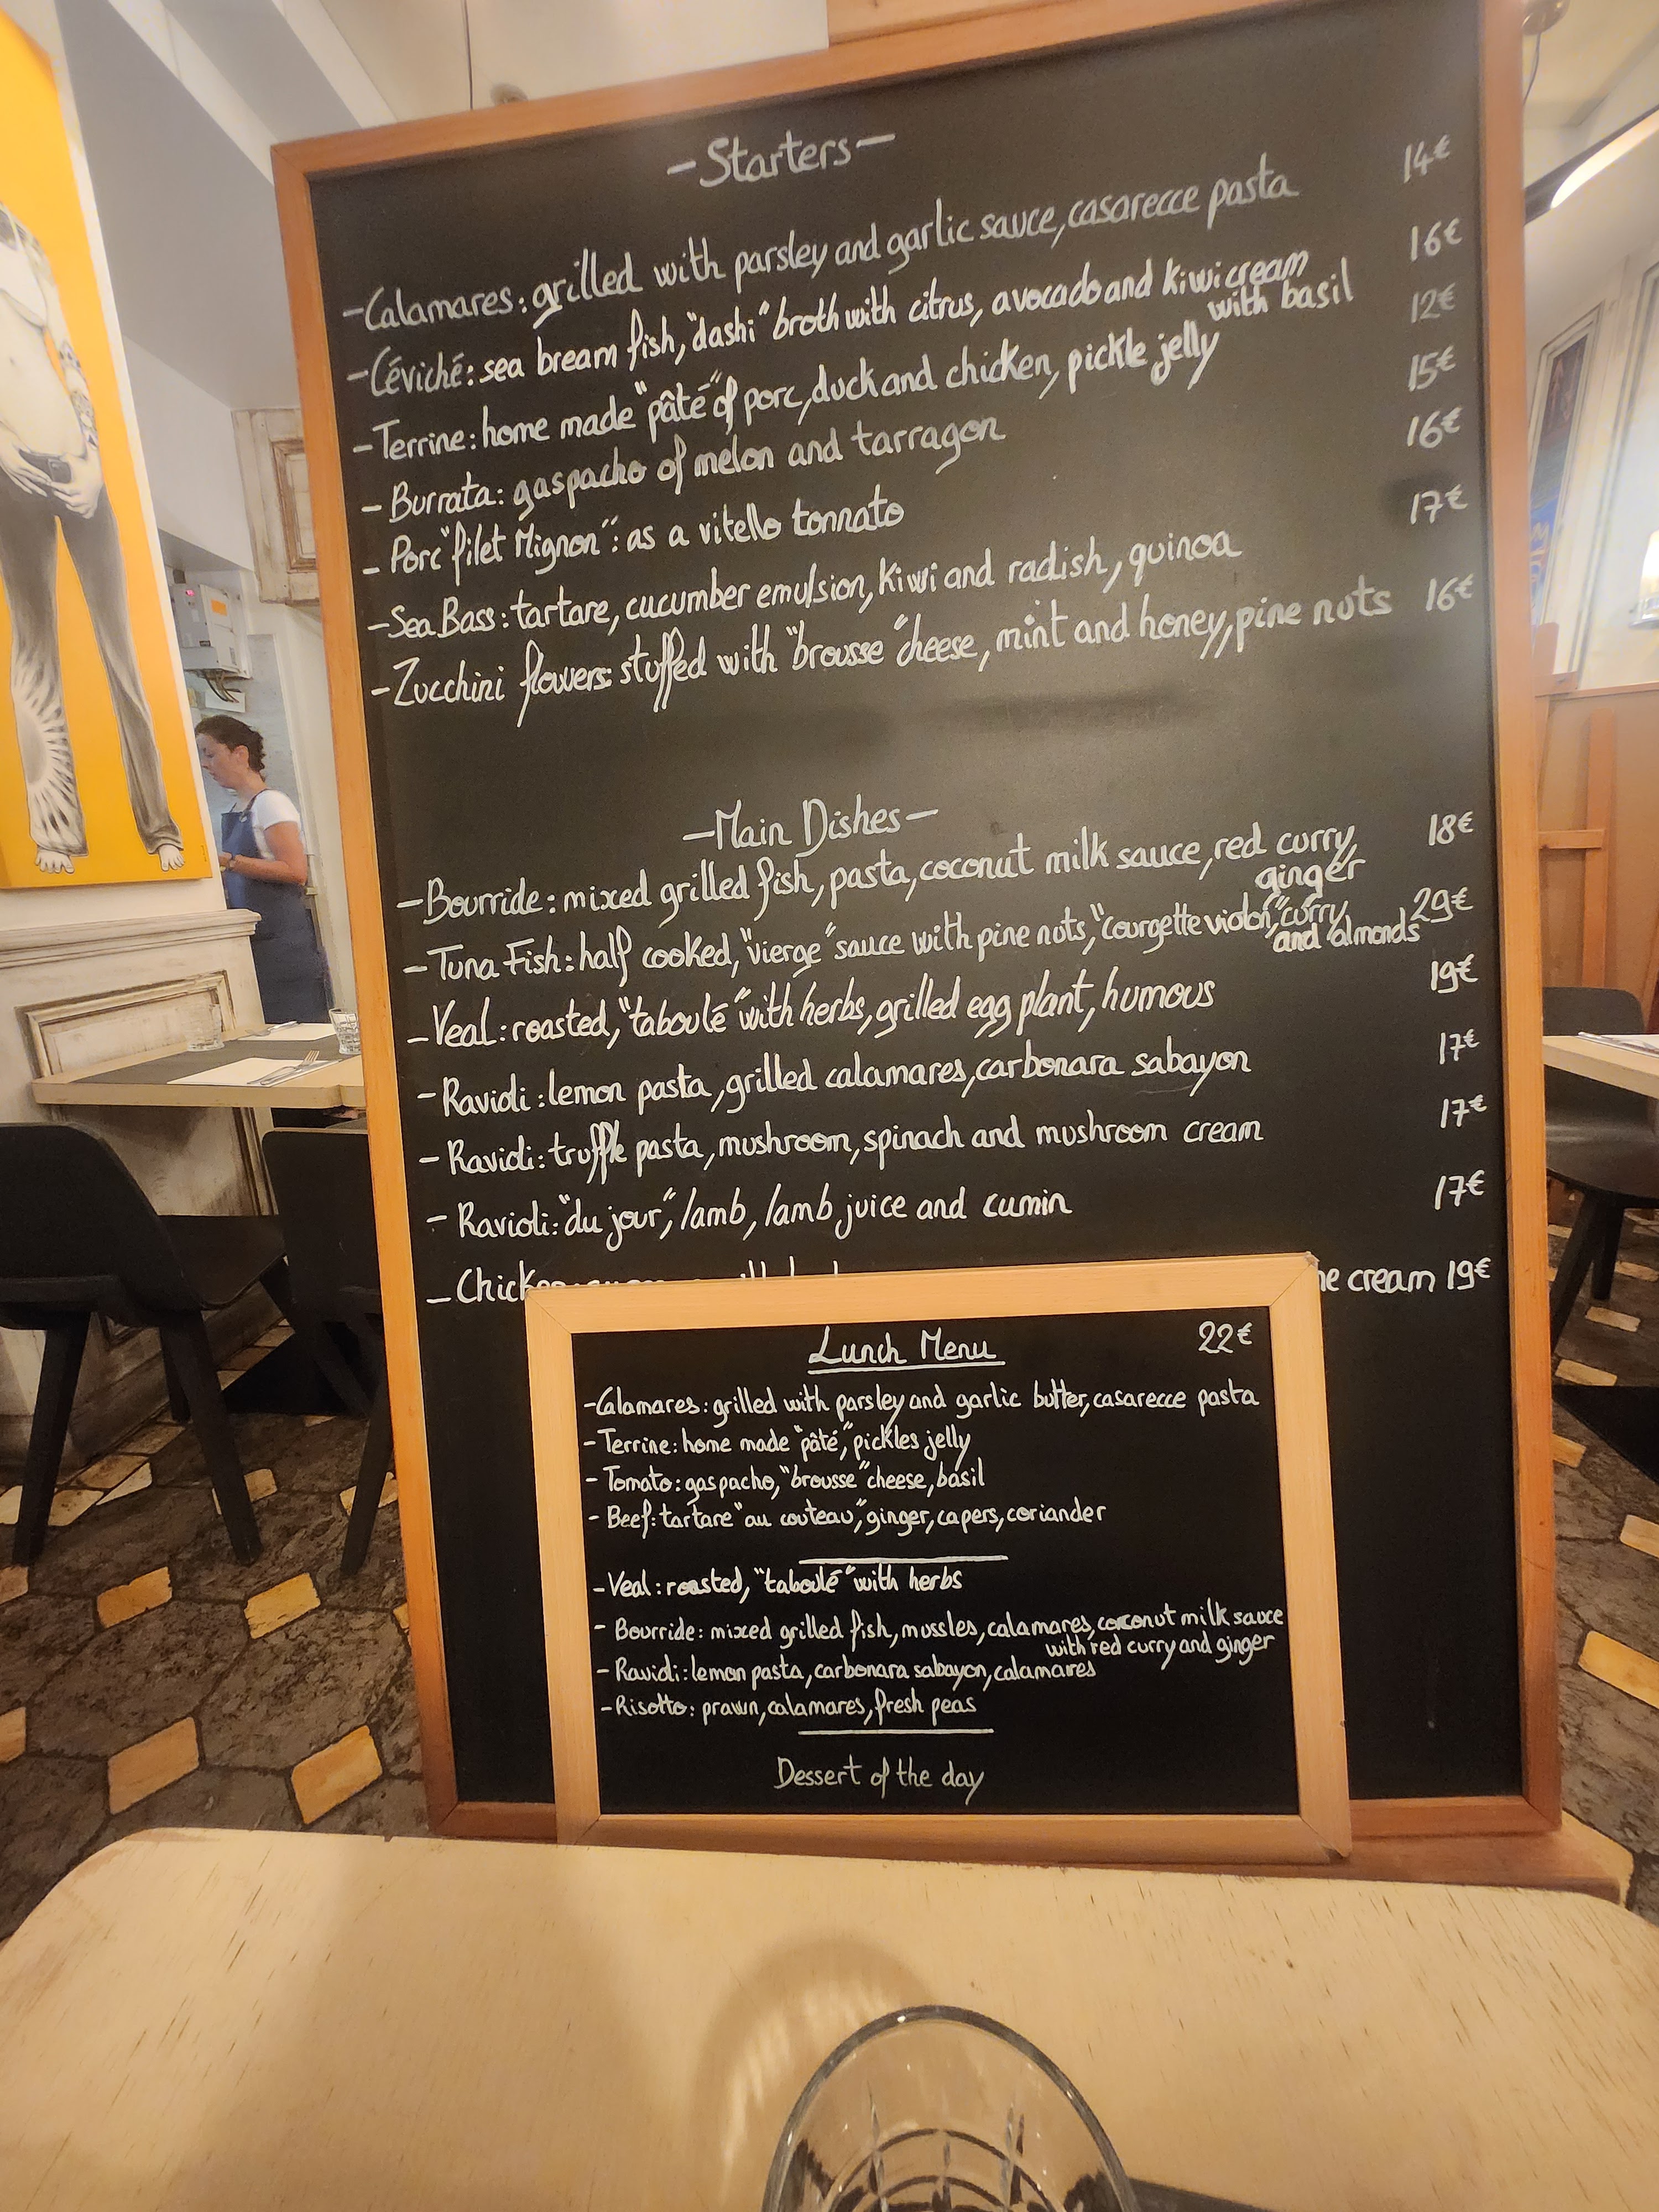 -Starters-
-Calamares: grilled with parsley and garlic sauce, casarecce pasta 14€
-Céviché: sea bream fish, "dashi" broth with citrus, avocado and kiwi cream 16€
with basil
-Terrine: home made "pâté" of porc, duck and chicken, pickle jelly 12€
- Burrata: gaspacho of melon and tarragon 15€
- Porc "filet Mignon": as a vitello tonnato 16€
-Sea Bass: tartare, cucumber emulsion, kiwi and radish, quinoa 17€
-Zucchini flowers: stuffed with "brousse" cheese, mint and honey, pine nuts 16€
-Main Dishes-
-Bourride: mixed grilled fish, pasta, coconut milk sauce, red curry, 18€
ginger
- Tuna Fish: half cooked, "vierge" sauce with pine nuts, "courgette violon", curry 29€
and almonds
-Veal: roasted, "taboulé" with herbs, grilled egg plant, humous 19€
- Ravioli: lemon pasta, grilled calamares, carbonara sabayon 17€
- Ravioli: truffle pasta, mushroom, spinach and mushroom cream 17€
- Ravioli: "du jour", lamb, lamb juice and cumin 17€
- cream 19€
Lunch Menu 22€
-Calamares: grilled with parsley and garlic butter, casarecce pasta
- Terrine: home made "pâté", pickles jelly
- Tomato: gaspacho, "brousse" cheese, basil
- Beef: tartare "au couteau", ginger, capers, coriander
- Veal: roasted, "taboulé" with herbs
- Bourride: mixed grilled fish, mussles, calamares, coconut milk sauce
with red curry and ginger
- Ravioli: lemon pasta, carbonara sabayon, calamares
- Risotto: prawn, calamares, fresh peas
Dessert of the day